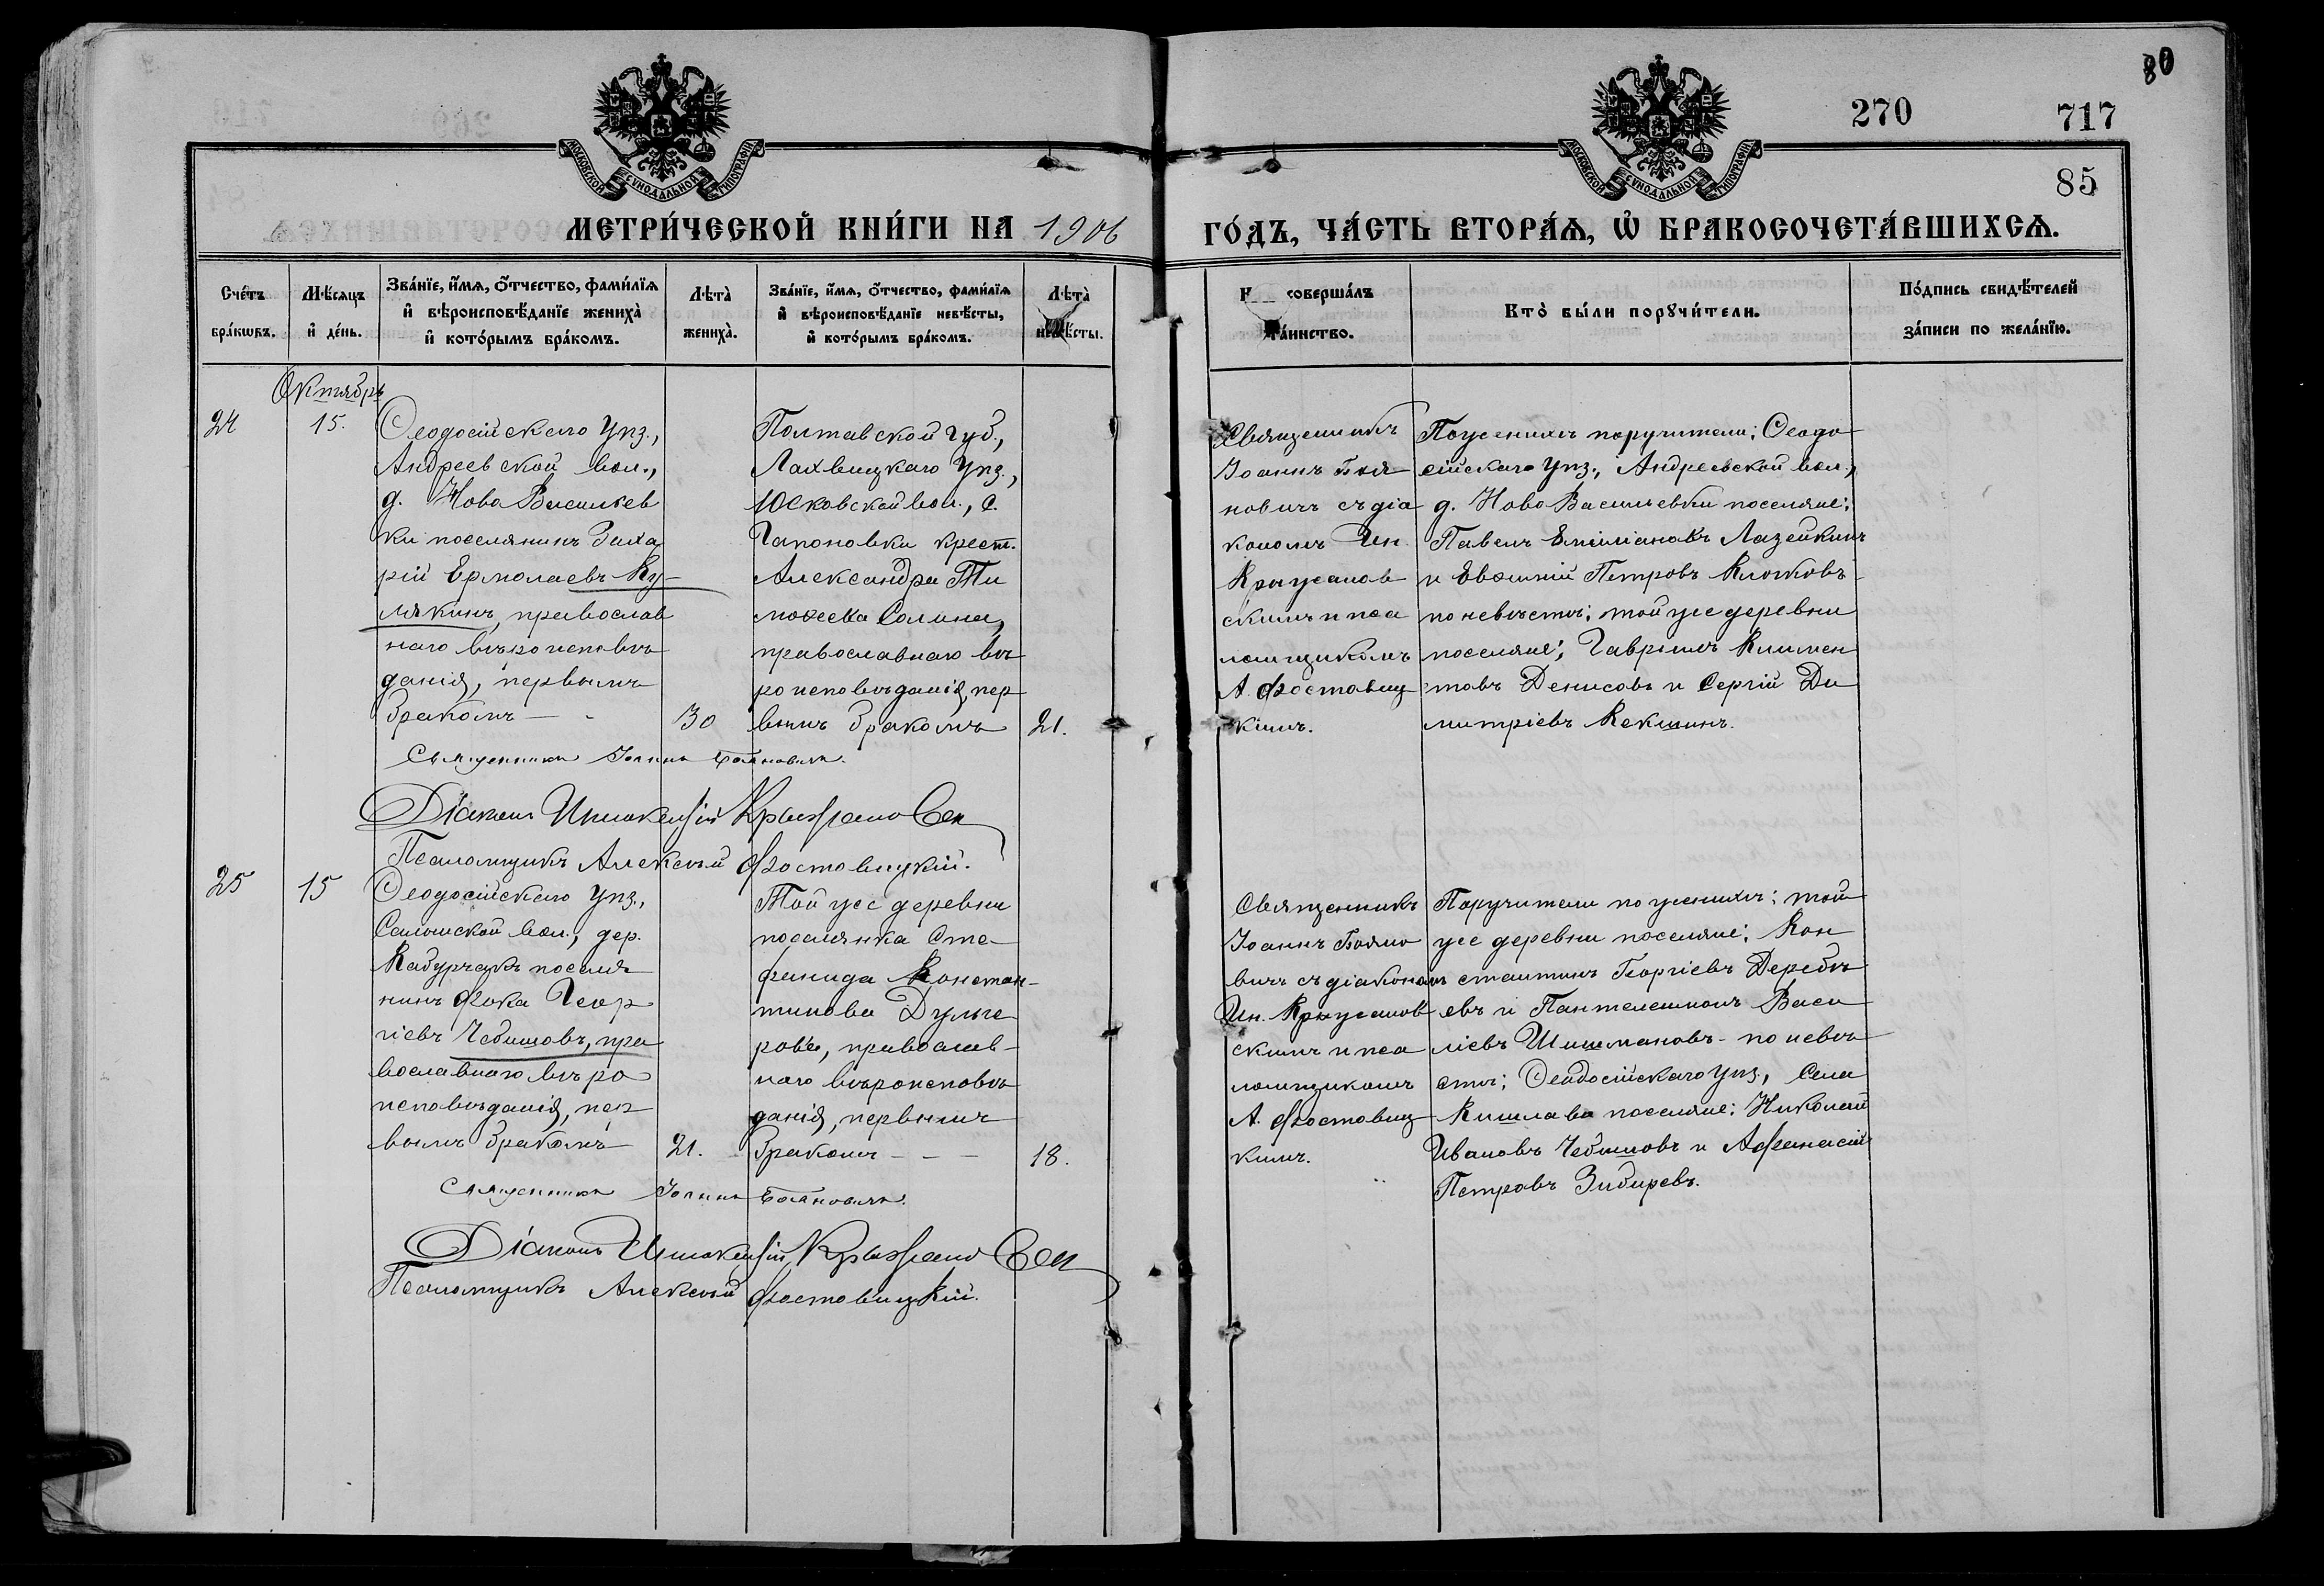 80
270
717
85
МОСКОВСКОЙ СѴНОДАЛЬНОЙ ТИПОГРАФІИ
МОСКОВСКОЙ СѴНОДАЛЬНОЙ ТИПОГРАФІИ
МЕТРИ́ЧЕСКОЙ КНИ́ГИ НА 1906
ГО́ДЪ, ЧА́СТЬ ВТОРА́Ѧ, Ѡ҆ БРАКОСОЧЕТА́ВШИХСѦ.
Сче́тъ
бра́кѡвъ.
Мѣ́сяцъ
и҆ де́нь.
Зва́нїе, и҆́мѧ, ѻ҆́тчество, фами́лїѧ
и҆ вѣроисповѣ́данїе жениха̀
и҆ кото́рымъ бра́комъ.
Лѣта̀
жениха̀.
Зва́нїе, и҆́мѧ, ѻ҆́тчество, фами́лїѧ
и҆ вѣроисповѣ́данїе невѣ́сты,
и҆ кото́рымъ бра́комъ.
Лѣта̀
невѣ́сты.
соверша́лъ
та́инство.
Кто̀ бы́ли порꙋчи́тели.
По́дпись свидѣ́телей
за́писи по жела́нїю.
Октябрь
24
15.
Ѳеодосійскаго Уѣз.,
Андреевской вол.,
д. Ново Васильев
ки поселянинъ Заха
рій Ермолаевъ Ку-
лякинъ, православ
наго вѣроисповѣ
данія, первымъ
бракомъ
30
Полтавской губ.,
Лахвицкаго Уѣз.,
Юсковской вол., с.
Гапоновки крест.
Александра Ти
моѳеева Солина,
православнаго вѣ
роисповѣданія, пер
вымъ бракомъ
21.
Священникъ
Іоаннъ Боя
новичъ съ діа
кономъ Ин.
Крыжанов
скимъ и пса
ломщикомъ
А. Фостовиц
кимъ.
По женихѣ поручители: Ѳеодо
сійскаго Уѣз., Андреевской вол.,
д. Ново Васильевки поселяне:
Павелъ Емиліановъ Лазейкинъ
и Евѳимій Петровъ Клюковъ-
по невѣстѣ: той же деревни
поселяне: Гавріилъ Климен
товъ Денисовъ и Сергій Ди
митріевъ Кекшинъ.
Священникъ Іоаннъ Бояновичъ.
Діаконъ Иннокентій Крыжановск
Псаломщикъ Алексѣй Фостовицкій.
25
15
Ѳеодосійскаго Уѣз.,
Салынской вол., дер.
Кабурчакъ поселя
нинъ Фока Геор
гіевъ Чебишовъ, пра
вославнаго вѣро
исповѣданія, пер
вымъ бракомъ
21.
Той же деревни
поселянка Сте-
фанида Констан-
тинова Дульге
рова, православ-
наго вѣроисповѣ
данія, первымъ
бракомъ
18.
Священникъ
Іоаннъ Бояно
вичъ съ діакономъ
Ин. Крыжанов
скимъ и пса
ломщикомъ
А. Фостовиц
кимъ.
Поручители по женихѣ: той
же деревни поселяне: Кон
стантинъ Георгіевъ Деребѣ
евъ и Пантелеимонъ Васи
ліевъ Шишмановъ - по невѣ
стѣ: Ѳеодосійскаго Уѣз., села
Кишлава поселяне: Николай
Ивановъ Чебишовъ и Афанасій
Петровъ Зибиревъ.
Священникъ Іоаннъ Бояновичъ.
Діаконъ Иннокентій Крыжановск
Псаломщикъ Алексѣй Фостовицкій.